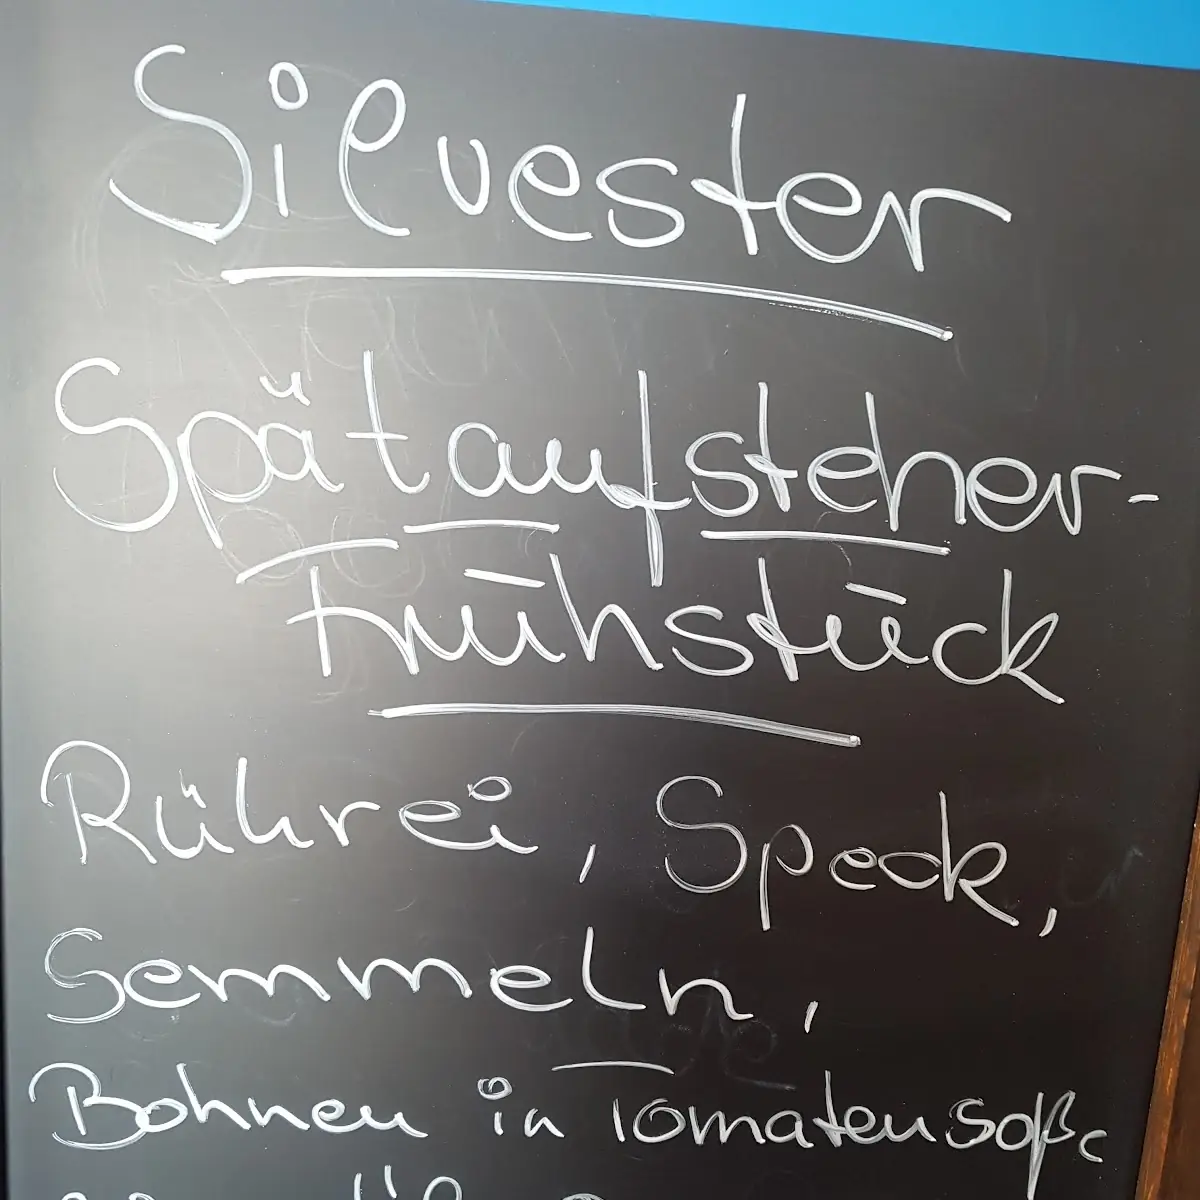 Silvester
Spätaufsteher-
Frühstück
Rührei, Speck,
Semmeln,
Bohnen in Tomatensoße